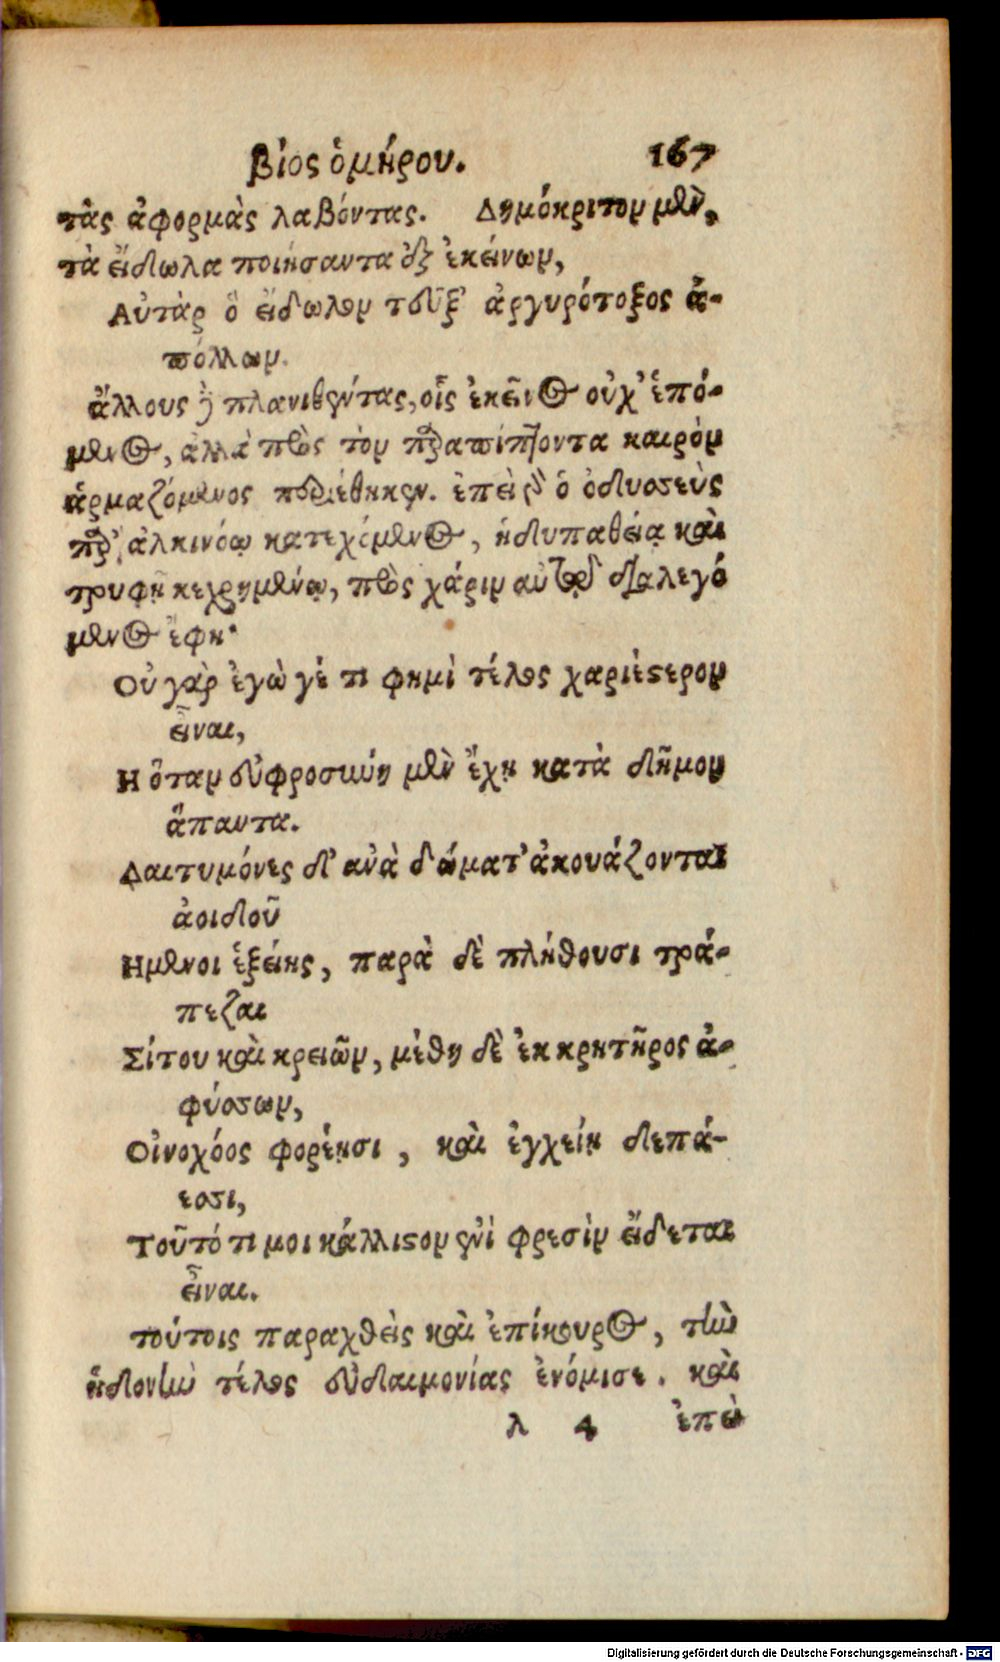 βίος ὁμήρου. 167
τὰς ἀφορμὰς λαβόντας. Δημόκριτον μὲν,
τὰ εἴδωλα ποιήσαντα ἐξ ἐκείνων,
Αὐτὰρ ὃ εἴδωλον τεῦξ' ἀργυρότοξος ἀ-
πόλλων.
ἄλλους δὲ πλανηθέντας, οἷς ἐκεῖνος οὐχ' ἑπό-
μενος, ἀλλὰ πρὸς τὸν παραπίπτοντα καιρὸν
ἁρμαζόμενος παρέθηκεν. ἐπεὶ δὲ ὁ ὀδυσσεὺς
παρ' ἀλκινόῳ κατεχόμενος, ἡδυπαθείᾳ καὶ
τρυφῇ κεχρημένῳ, πρὸς χάριν αὐτῷ διαλεγό
μενος ἔφη·
Οὐ γὰρ ἐγὼ γέ τι φημὶ τέλος χαριέστερον
εἶναι,
Η ὅταν εὐφροσύνη μὲν ἔχῃ κατὰ δῆμον
ἅπαντα.
Δαιτυμόνες δ' ἀνὰ δώματ' ἀκουάζονται
ἀοιδοῦ
Ημενοι ἑξείης, παρὰ δὲ πλήθουσι τρά-
πεζαι
Σίτου καὶ κρειῶν, μέθυ δὲ ἐκ κρητῆρος ἀ-
φύσσων,
Οἰνοχόος φορέῃσι, καὶ ἐγχείῃ δεπά-
εσσι,
Τοῦτό τι μοι κάλλιστον ἐνὶ φρεσὶν εἴδεται
εἶναι.
τούτοις παραχθεὶς καὶ ἐπίκουρος, τὴν
ἡδονὴν τέλος εὐδαιμονίας ἐνόμισε. καὶ
λ 4 ἐπεὶ
Digitalisierung gefördert durch die Deutsche Forschungsgemeinschaft - DFG